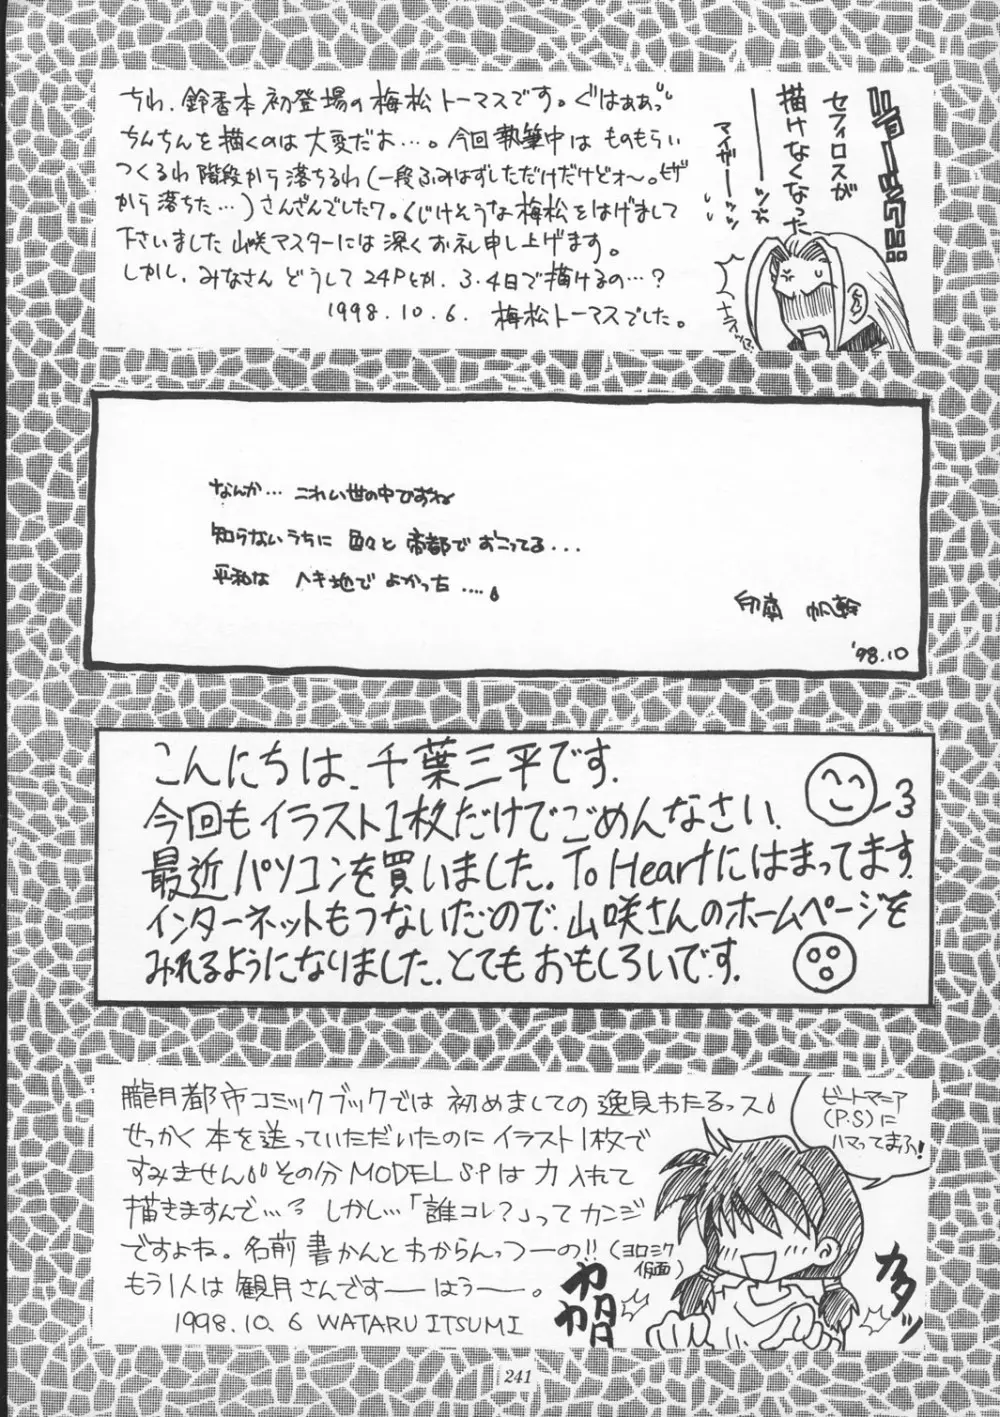 ちわ、鈴香本初登場の梅松トーマスです。ぐはぁぁっ
ちんちんを描くのは大変だお…。今回執筆中はものもらい
つくるわ階段から落ちるわ(一段ふみはずしただけだけどォ〜。ヒザ
から落ちた…)さんざんでしたワ。くじけそうな梅松をはげまして
下さいました山咲マスターには深くお礼申し上げます。
しかし、みなさんどうして24Pとか、3.4日で描けるの…?
1998.10.6. 梅松トーマスでした。
セフィロスが
描けなくなった
マイガーーッッ
なんか… こわい世の中ですね
知らないうちに 色々と 帝都で おこってる...
平和な ヘキ地で よかった ....。
'98.10
こんにちは、千葉三平です。
今回もイラスト1枚だけでごめんなさい、
最近パソコンを買いました。To Heartにはまってます。
インターネットもつないだので、山咲さんのホームページを
みれるようになりました、とてもおもしろいです。
朧月都市コミックブックでは 初めましての 逸見わたるっス。
せっかく本を送っていただいたのにイラスト1枚で
すみません。。その分MODEL S.Pは力入れて
描きますんで…? しかし…「誰コレ?」ってカンジ
ですよね。名前書かんとわからんっつーの!!(ヨロミク仮面)
もう1人は観月さんですーーはぅーー。
1998.10.6 WATARU ITSUMI
ビートマニア
(P.S)に
ハマってまふ!
カタッッ
241